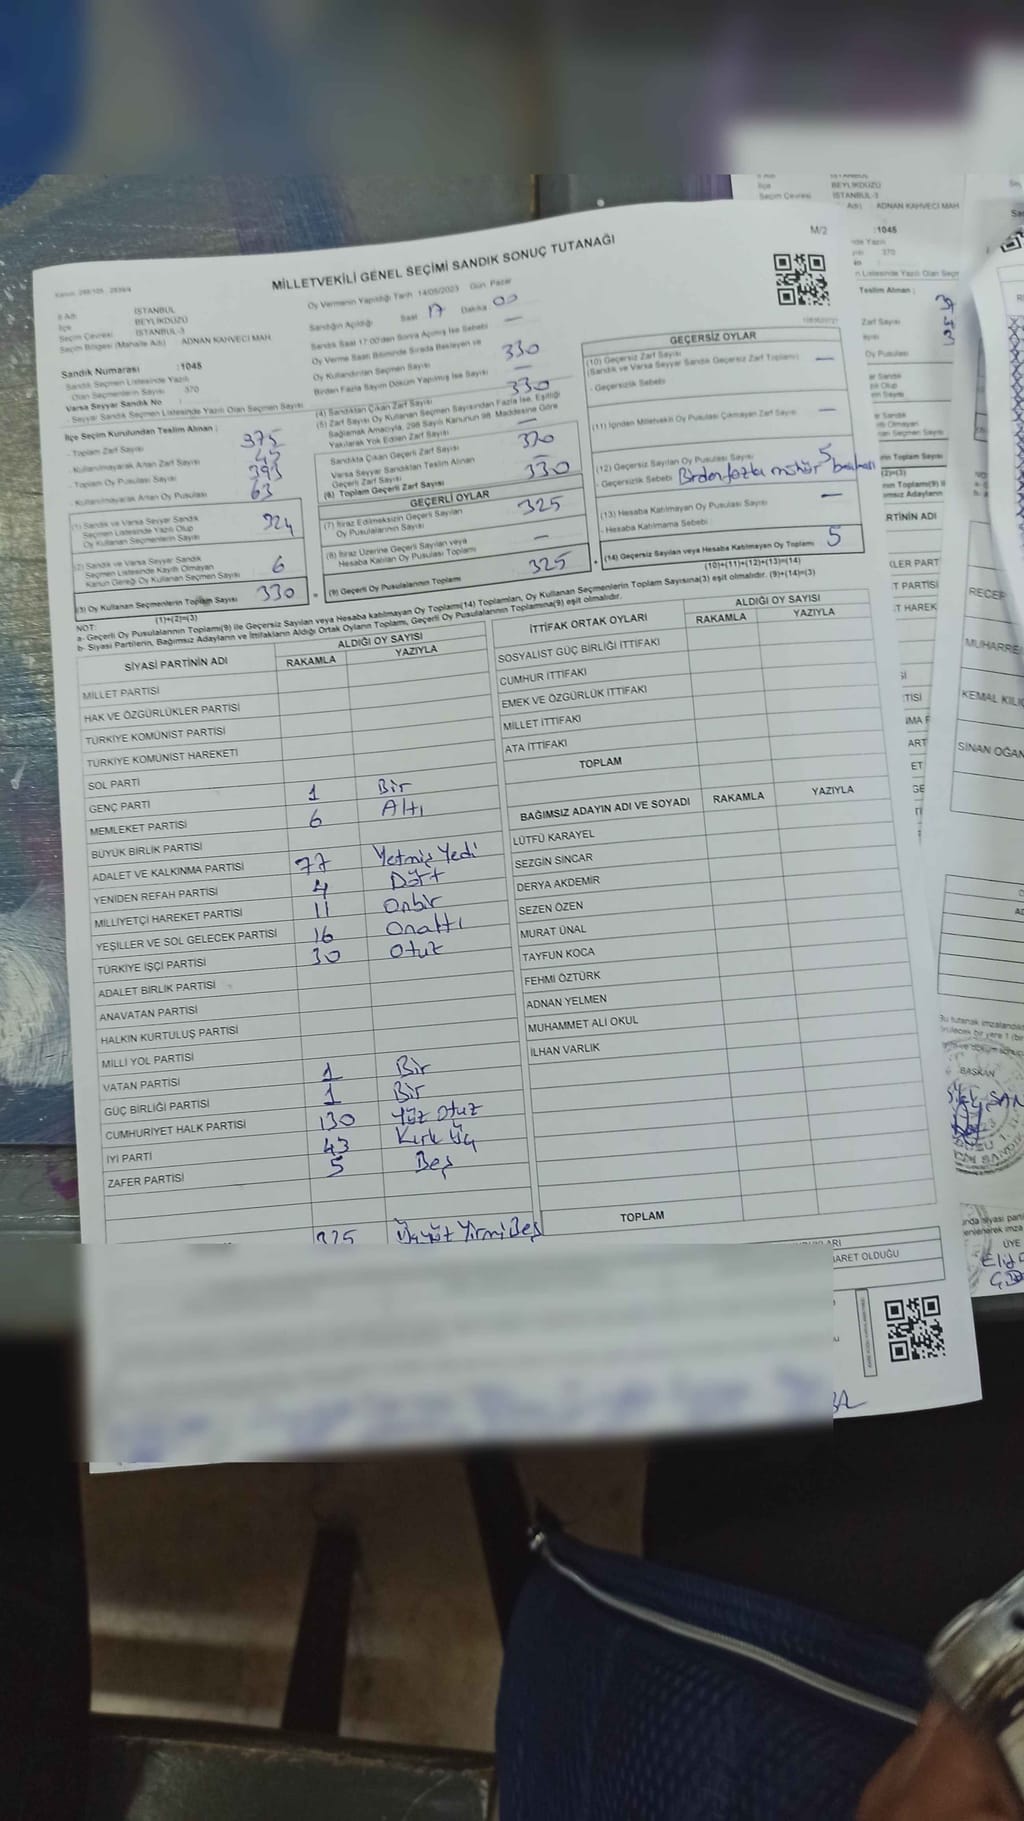 MİLLETVEKİLİ GENEL SEÇİMİ SANDIK SONUÇ TUTANAĞI
M/2
İl Adı İSTANBUL
İlçe BEYLİKDÜZÜ
Seçim Çevresi İSTANBUL-3
Seçim Bölgesi (Mahalle Adı) ADNAN KAHVECİ MAH
Oy Vermenin Yapıldığı Tarih 14/05/2023 Gün Pazar
Sandığın Açıldığı Saat 17 Dakika 00
Sandık Saat 17:00'den Sonra Açılmış İse Sebebi —
Oy Verme Saati Bitiminde Sırada Bekleyen ve
Oy Kullandırılan Seçmen Sayısı 330
Birden Fazla Sayım Döküm Yapılmış İse Sayısı —
Sandık Numarası :1045
Sandık Seçmen Listesinde Yazılı
Olan Seçmenlerin Sayısı 370
Varsa Seyyar Sandık No
Seyyar Sandık Seçmen Listesinde Yazılı Olan Seçmen Sayısı
İlçe Seçim Kurulundan Teslim Alınan ;
- Toplam Zarf Sayısı 375
- Kullanılmayarak Artan Zarf Sayısı 45
- Toplam Oy Pusulası Sayısı 393
- Kullanılmayarak Artan Oy Pusulası 63
(1) Sandık ve Varsa Seyyar Sandık
Seçmen Listesinde Yazılı Olup
Oy Kullanan Seçmenlerin Sayısı 324
(2) Sandık ve Varsa Seyyar Sandık
Seçmen Listesinde Kayıtlı Olmayan
Kanun Gereği Oy Kullanan Seçmen Sayısı 6
(3) Oy Kullanan Seçmenlerin Toplam Sayısı 330
(1)+(2)=(3)
(4) Sandıktan Çıkan Zarf Sayısı 330
(5) Zarf Sayısı Oy Kullanan Seçmen Sayısından Fazla İse, Eşitliği
Sağlamak Amacıyla, 298 Sayılı Kanunun 98. Maddesine Göre
Yakılarak Yok Edilen Zarf Sayısı —
Sandıkta Çıkan Geçerli Zarf Sayısı 330
Varsa Seyyar Sandıktan Teslim Alınan
Geçerli Zarf Sayısı
(6) Toplam Geçerli Zarf Sayısı 330
GEÇERLİ OYLAR
(7) İtiraz Edilmeksizin Geçerli Sayılan
Oy Pusulalarının Sayısı 325
(8) İtiraz Üzerine Geçerli Sayılan veya
Hesaba Katılan Oy Pusulası Toplamı —
(9) Geçerli Oy Pusulalarının Toplamı 325
GEÇERSİZ OYLAR
(10) Geçersiz Zarf Sayısı
(Sandık ve Varsa Seyyar Sandık Geçersiz Zarf Toplamı) —
- Geçersizlik Sebebi
(11) İçinden Milletvekili Oy Pusulası Çıkmayan Zarf Sayısı —
(12) Geçersiz Sayılan Oy Pusulası Sayısı 5
- Geçersizlik Sebebi Birden fazla mühür basılması
(13) Hesaba Katılmayan Oy Pusulası Sayısı —
- Hesaba Katılmama Sebebi
(14) Geçersiz Sayılan veya Hesaba Katılmayan Oy Toplamı 5
(10)+(11)+(12)+(13)=(14)
NOT:
a- Geçerli Oy Pusulalarının Toplamı(9) ile Geçersiz Sayılan veya Hesaba katılmayan Oy Toplamı(14) Toplamları, Oy Kullanan Seçmenlerin Toplam Sayısına(3) eşit olmalıdır. (9)+(14)=(3)
b- Siyasi Partilerin, Bağımsız Adayların ve İttifakların Aldığı Ortak Oyların Toplamı, Geçerli Oy Pusulalarının Toplamına(9) eşit olmalıdır.
SİYASİ PARTİNİN ADI ALDIĞI OY SAYISI
RAKAMLA YAZIYLA
MİLLET PARTİSİ
HAK VE ÖZGÜRLÜKLER PARTİSİ
TÜRKİYE KOMÜNİST PARTİSİ
TÜRKİYE KOMÜNİST HAREKETİ
SOL PARTİ
GENÇ PARTİ 1 Bir
MEMLEKET PARTİSİ 6 Altı
BÜYÜK BİRLİK PARTİSİ
ADALET VE KALKINMA PARTİSİ 77 Yetmiş Yedi
YENİDEN REFAH PARTİSİ 4 Dört
MİLLİYETÇİ HAREKET PARTİSİ 11 Onbir
YEŞİLLER VE SOL GELECEK PARTİSİ 16 Onaltı
TÜRKİYE İŞÇİ PARTİSİ 30 Otuz
ADALET BİRLİK PARTİSİ
ANAVATAN PARTİSİ
HALKIN KURTULUŞ PARTİSİ
MİLLİ YOL PARTİSİ
VATAN PARTİSİ 1 Bir
GÜÇ BİRLİĞİ PARTİSİ 1 Bir
CUMHURİYET HALK PARTİSİ 130 Yüz Otuz
İYİ PARTİ 43 Kırk Üç
ZAFER PARTİSİ 5 Beş
325 Üçyüz Yirmi Beş
İTTİFAK ORTAK OYLARI ALDIĞI OY SAYISI
RAKAMLA YAZIYLA
SOSYALİST GÜÇ BİRLİĞİ İTTİFAKI
CUMHUR İTTİFAKI
EMEK VE ÖZGÜRLÜK İTTİFAKI
MİLLET İTTİFAKI
ATA İTTİFAKI
TOPLAM
BAĞIMSIZ ADAYIN ADI VE SOYADI RAKAMLA YAZIYLA
LÜTFÜ KARAYEL
SEZGİN SİNCAR
DERYA AKDEMİR
SEZEN ÖZEN
MURAT ÜNAL
TAYFUN KOCA
FEHMİ ÖZTÜRK
ADNAN YELMEN
MUHAMMET ALİ OKUL
İLHAN VARLIK
TOPLAM
ARET OLDUĞU
İlçe BEYLİKDÜZÜ
Seçim Çevresi İSTANBUL-3
Adı) ADNAN KAHVECİ MAH
:1045
370
Teslim Alınan ;
Zarf Sayısı
RTİNİN ADI
LER PART
T PARTİSİ
T HAREK
RECEP
MUHARRE
KEMAL KILI
SİNAN OĞAN
BAŞKAN
ÜYE
Elif